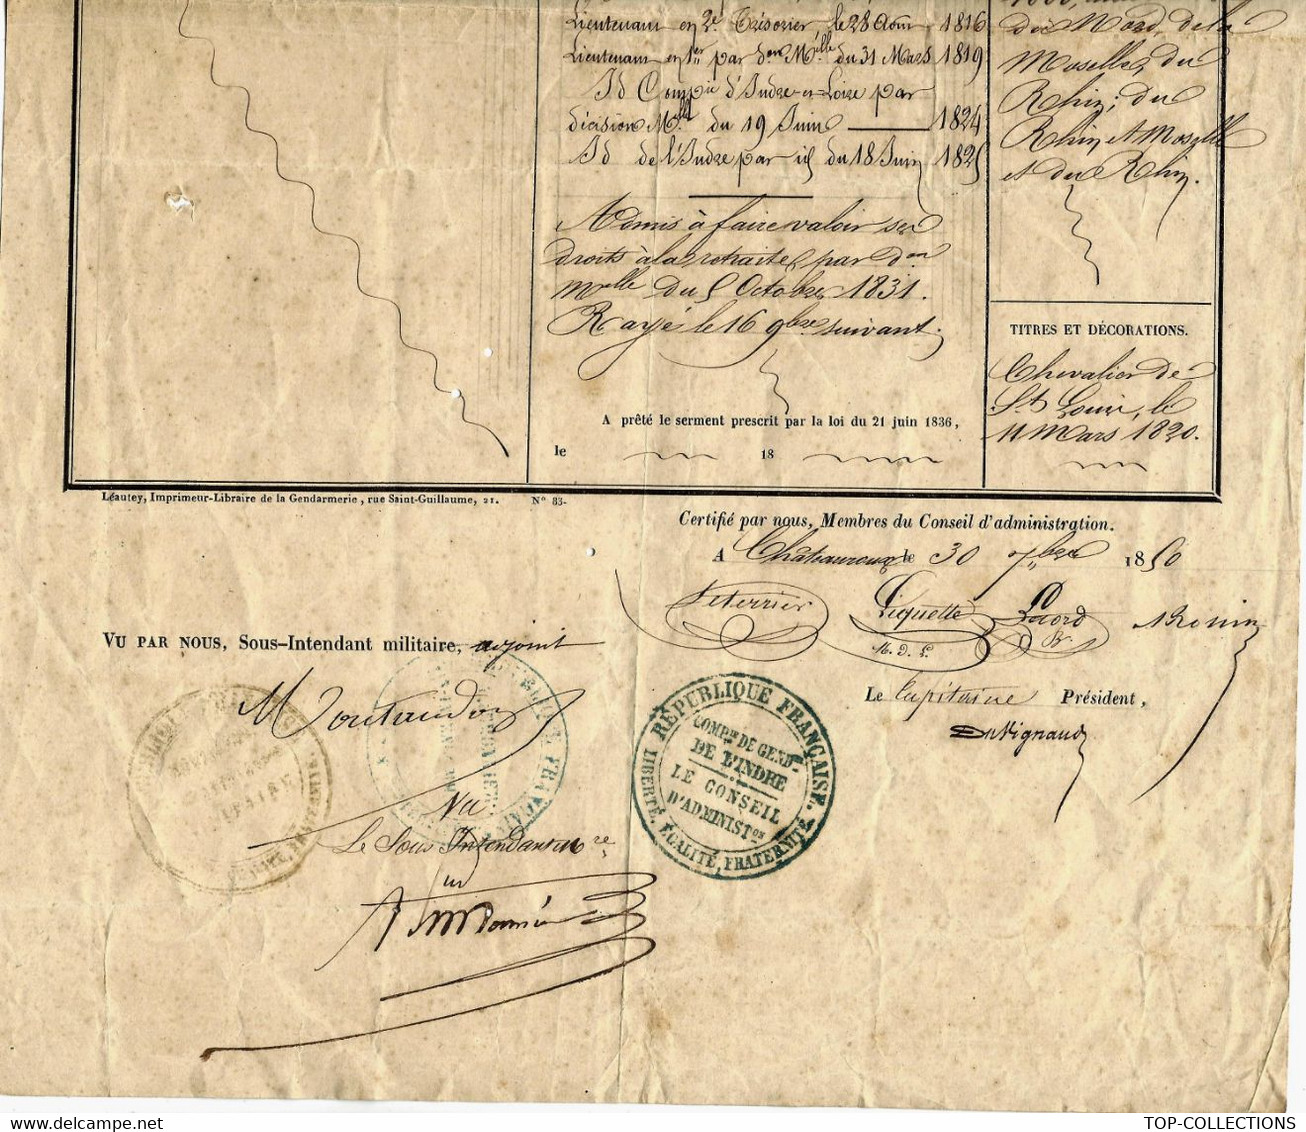 Lieutenant en 2e Trésorier le 28 Août 1816
Lieutenant en 1er par don Melle du 31 Mars 1819
Id Compie d'Indre-et-Loire par
décision Melle du 19 Juin 1824
Id de l'Indre par id du 18 Juin 1825
Admis à faire valoir ses
droits à la retraite, par don
Melle du 5 Octobre 1831.
Rayé le 16 9bre suivant.
A prêté le serment prescrit par la loi du 21 juin 1836,
le 18
du Nord, de la
Moselle, du
Rhin, du
Rhin et Moselle
et du Rhin.
TITRES ET DÉCORATIONS.
Chevalier de
St Louis, le
11 Mars 1820.
Léautey, Imprimeur-Libraire de la Gendarmerie, rue Saint-Guillaume, 21. No 83-
Certifié par nous, Membres du Conseil d'administration.
A Châteauroux le 30 7bre 1850
Leterrier Liquette
M. D. L.
Br
VU PAR NOUS, Sous-Intendant militaire, adjoint
Montaudon
Le Capitaine Président,
Duvignaud
RÉPUBLIQUE FRANÇAISE.
LIBERTÉ, ÉGALITÉ, FRATERNITÉ
COMPie DE GENDie
DE L'INDRE
LE CONSEIL
D'ADMINISTon
Vu
Le Sous Intendant mre
TOP-COLLECTIONS